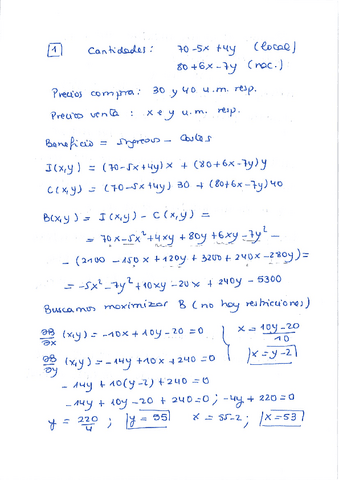 1 Cantidades : 70-5x+4y (local)
80+6x-7y (nac.)
Precios compra : 30 y 40 u.m. resp.
Precios venta : x e y u.m. resp.
Beneficio = Ingresos - Costes
I(x,y) = (70-5x+4y)x + (80+6x-7y)y
C(x,y) = (70-5x+4y)30 + (80+6x-7y)40
B(x,y) = I(x,y) - C(x,y) =
= 70x-5x²+4xy+80y+6xy-7y² -
- (2100-150x+120y+3200+240x-280y) =
= -5x²-7y²+10xy-20x+240y-5300
Buscamos maximizar B (no hay restricciones)
∂B/∂x (x,y) = -10x+10y-20=0 x = 10y-20/10
∂B/∂y (x,y) = -14y+10x+240=0 x=y-2
-14y+10(y-2)+240=0
-14y+10y-20+240=0 ; -4y+220=0
y = 220/4 ; y=55 x=55-2 ; x=53